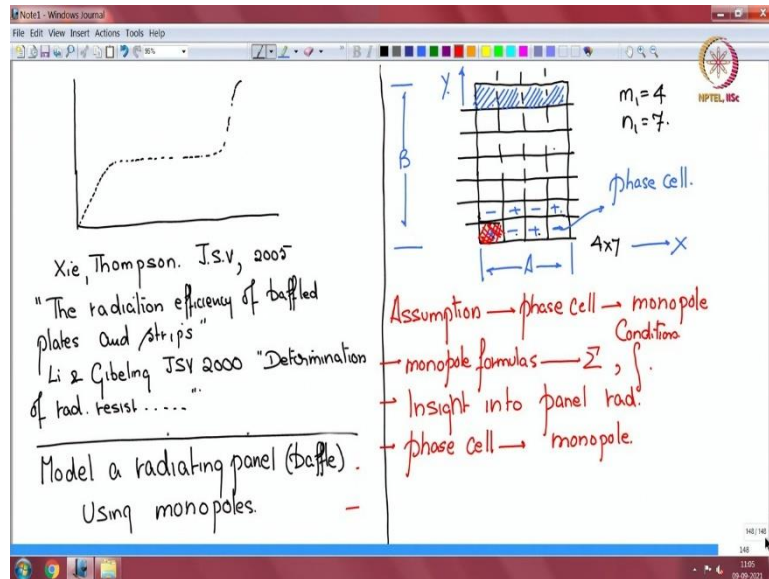 Note1 - Windows Journal
File Edit View Insert Actions Tools Help
95%
NPTEL, IISc
Xie, Thompson. J.S.V, 2005
"The radiation efficiency of baffled
plates and strips"
Li & Gibeling JSV 2000 "Determination
of rad. resist ......".
Model a radiating panel (baffle).
Using monopoles.
Y
m₁=4
n₁=7.
B
phase cell.
- + - +.
- + -
4x7
X
A
Assumption → phase cell → monopole
Conditions
- monopole formulas — Σ, ∫.
- Insight into panel rad.
- phase cell → monopole.
148 / 148
148
11:05
09-09-2021